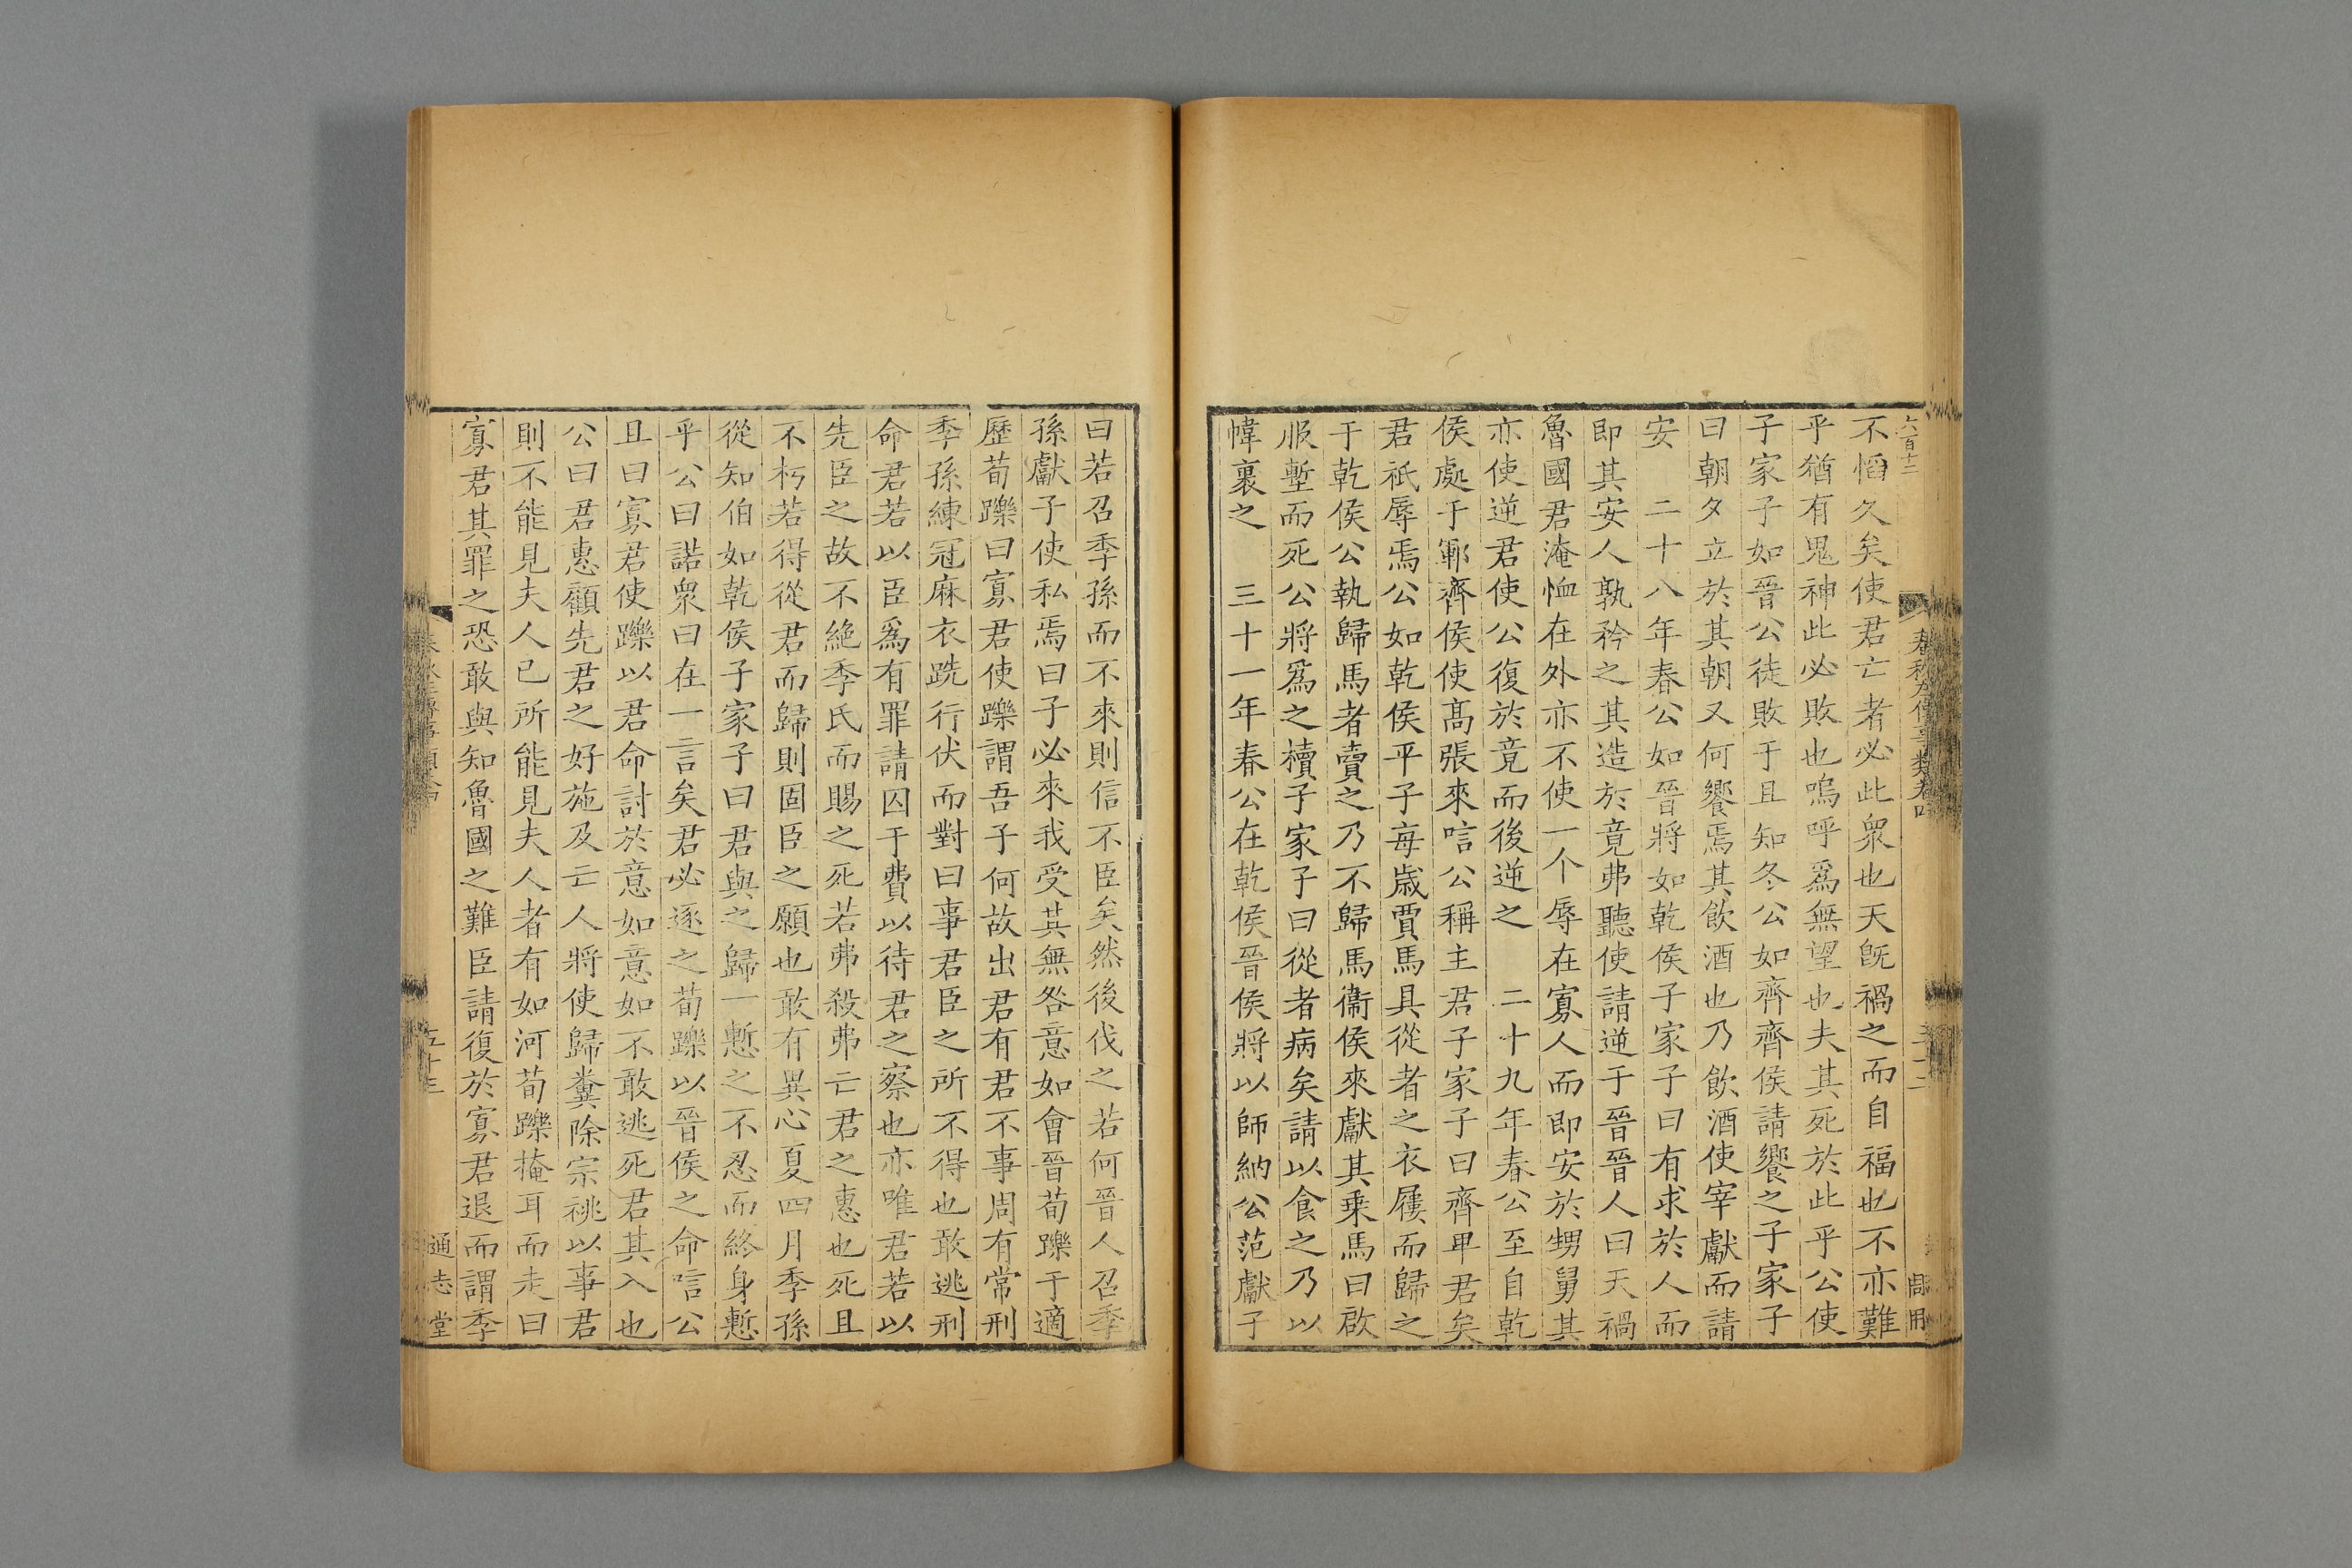 六百十二
不慆久矣使君亡者必此衆也天旣禍之而自福也不亦難
乎猶有鬼神此必敗也嗚呼爲無望也夫其死於此乎公使
子家子如晉公徒敗于且知冬公如齊齊侯請饗之子家子
曰朝夕立於其朝又何饗焉其飲酒也乃飲酒使宰獻而請
安　二十八年春公如晉將如乾侯子家子曰有求於人而
即其安人孰矜之其造於竟弗聽使請逆于晉晉人曰天禍
魯國君淹恤在外亦不使一个辱在寡人而即安於甥舅其
亦使逆君使公復於竟而後逆之　二十九年春公至自乾
侯處于鄆齊侯使高張來唁公稱主君子家子曰齊卑君矣
君祇辱焉公如乾侯平子每歲賈馬具從者之衣屨而歸之
于乾侯公執歸馬者賣之乃不歸馬衞侯來獻其乗馬曰啟
服塹而死公將爲之櫝子家子曰從者病矣請以食之乃以
幃裹之　三十一年春公在乾侯晉侯將以師納公范獻子
曰若召季孫而不來則信不臣矣然後伐之若何晉人召季
孫獻子使私焉曰子必來我受其無咎意如會晉荀躒于適
歷荀躒曰寡君使躒謂吾子何故出君有君不事周有常刑
季孫練冠麻衣跣行伏而對曰事君臣之所不得也敢逃刑
命君若以臣爲有罪請囚于費以待君之察也亦唯君若以
先臣之故不絶季氏而賜之死若弗殺弗亡君之惠也死且
不朽若得從君而歸則固臣之願也敢有異心夏四月季孫
從知伯如乾侯子家子曰君與之歸一慙之不忍而終身慙
乎公曰諾衆曰在一言矣君必逐之荀躒以晉侯之命唁公
且曰寡君使躒以君命討於意如意如不敢逃死君其入也
公曰君惠顧先君之好施及亡人將使歸糞除宗祧以事君
則不能見夫人已所能見夫人者有如河荀躒掩耳而走曰
寡君其罪之恐敢與知魯國之難臣請復於寡君退而謂季
五十三
通志堂